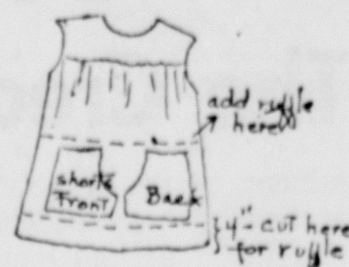 add ruffle
here
shorts
Front
Back
4" - cut here
for ruffle